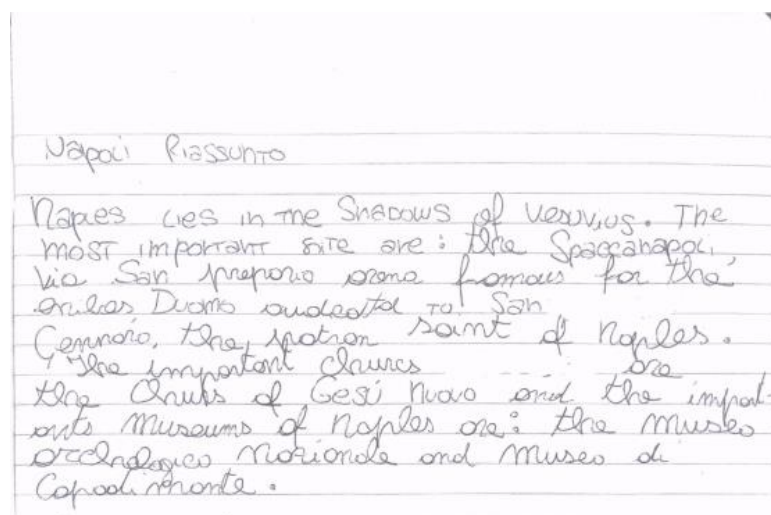 Napoli Riassunto
Naples lies in the Shadows of Vesuvius. The
most important site are: the Spaccanapoli,
Via San famous for the
Duomo to San
Gennaro, the patron saint of Naples.
The important churcs are
the Churks of Gesù Nuovo and the import-
ants Museums of Naples are: the museo
archologico Nazionale and Museo di
Capodimonte.